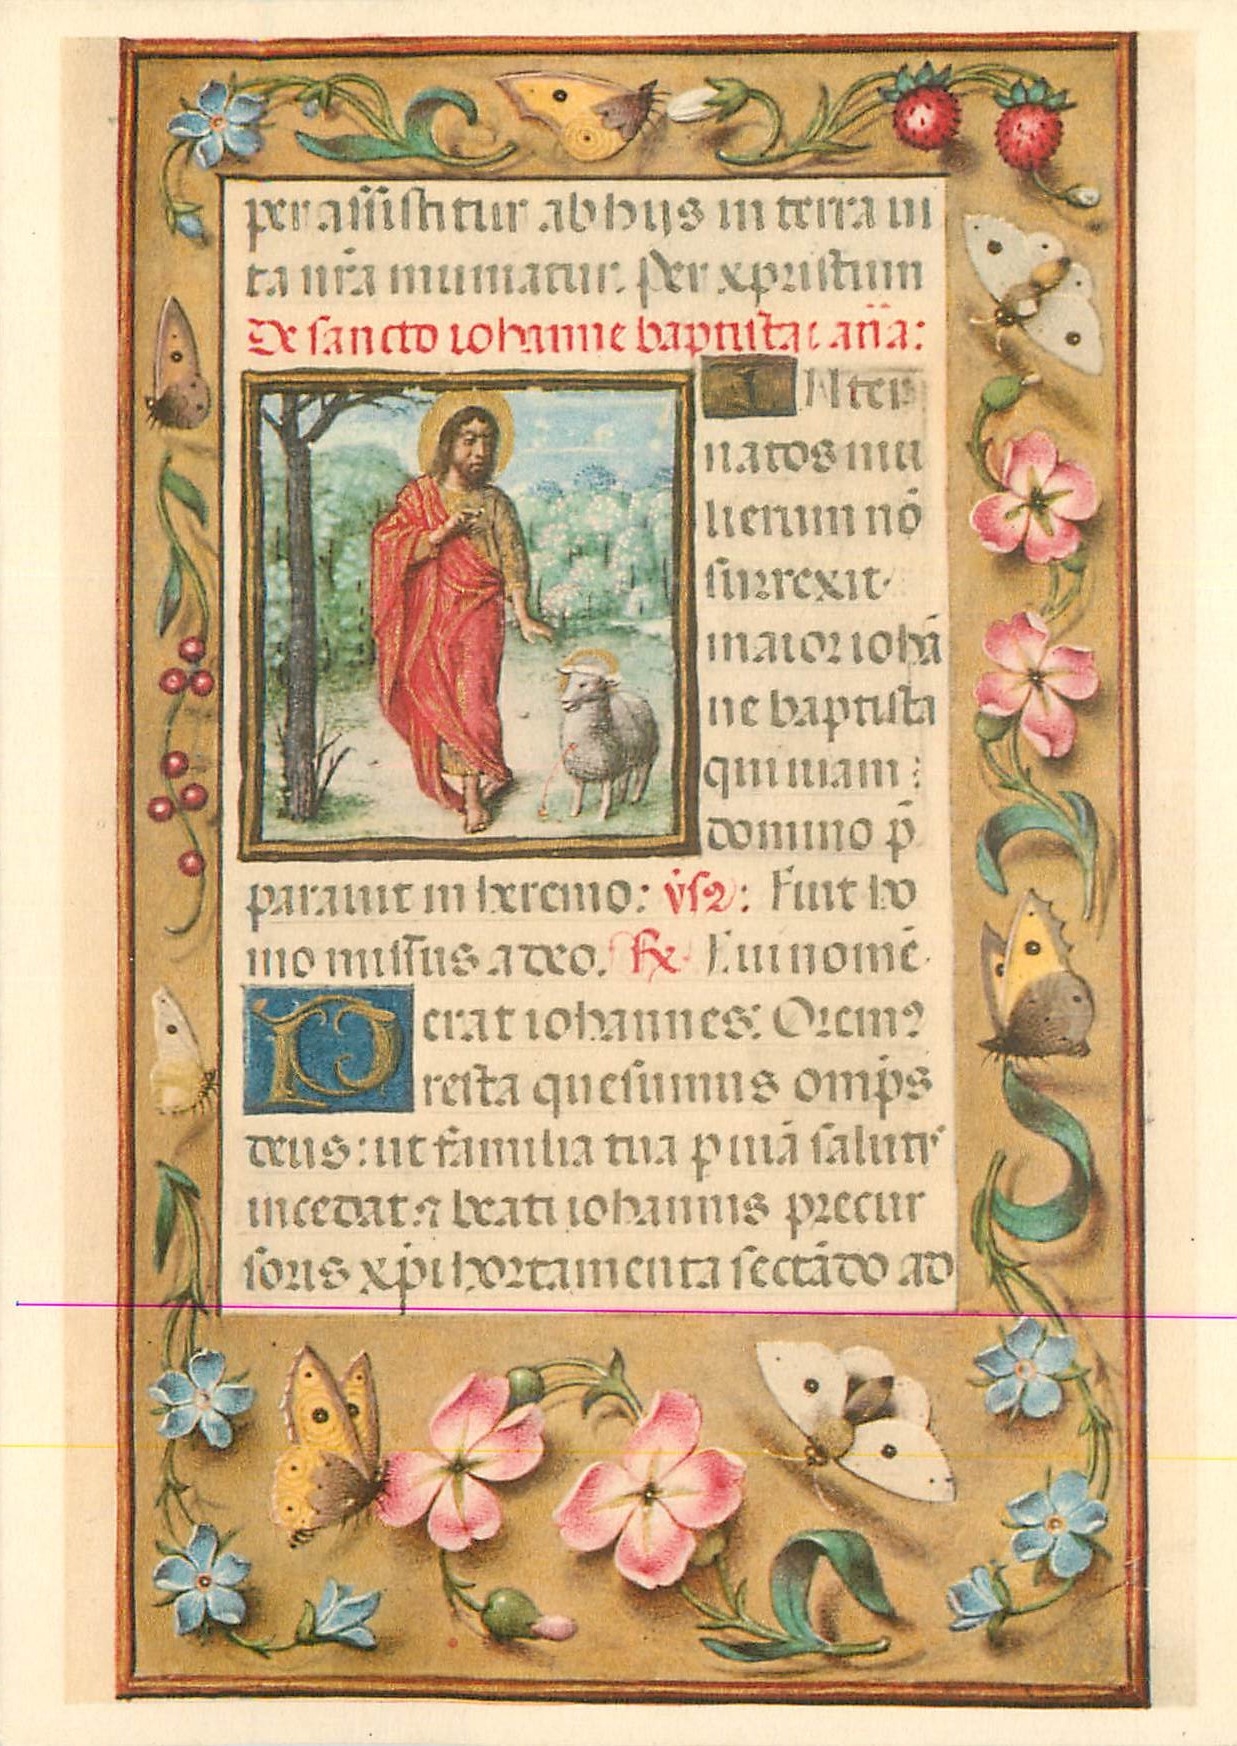 per assistitur ab hijs in terra ui
ta nr̄a muniatur. Per xpristum
De sancto iohanne baptista an̄a:
INter
natos mu
lierum nō
surrexit
maior iohā
ne baptista
qui uiam:
domino p̄
parauit in heremo: v̄s2: Fuit ho
mo missus a deo. Rx Cui nomē
erat iohannes: Orem9
Presta quesumus omīps
deus: ut familia tua p uiā salutis
incedat: ⁊ beati iohannis precur
soris xp̄i hortamenta sectādo ad